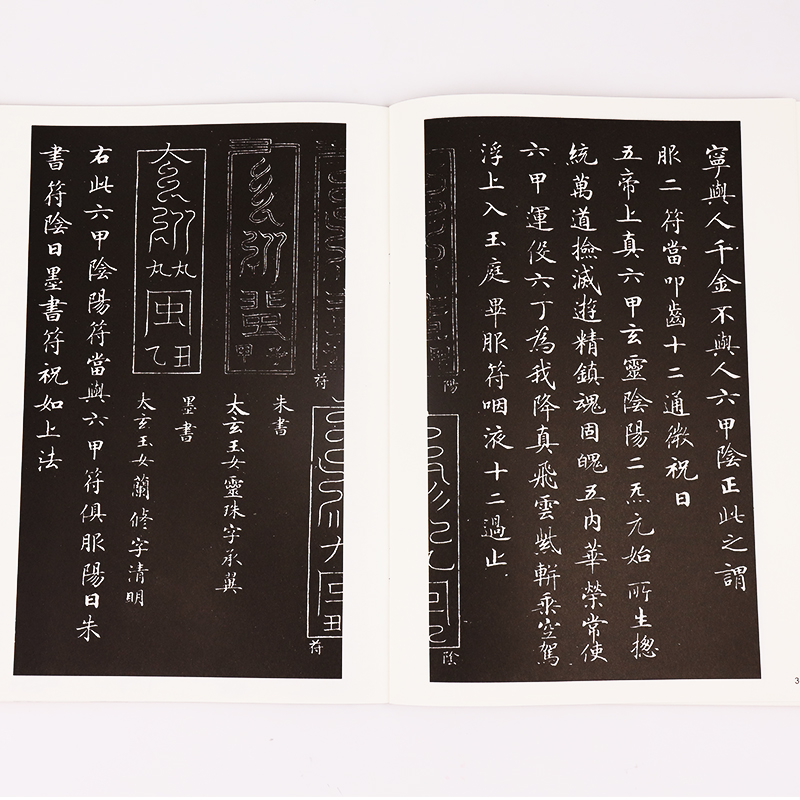 寧與人千金不與人六甲陰正此之謂
服二符當叩齒十二通微祝曰
五帝上真六甲玄靈陰陽二炁元始所生揔
統萬道撿滅遊精鎮魂固魄五內華榮常使
六甲運役六丁為我降真飛雲紫軿乘空駕
浮上入玉庭畢服符咽液十二過止
陽
陰
符
符
朱書
太玄玉女靈珠字承翼
墨書
太玄玉女蘭修字清明
右此六甲陰陽符當與六甲符俱服陽日朱
書符陰日墨書符祝如上法
3